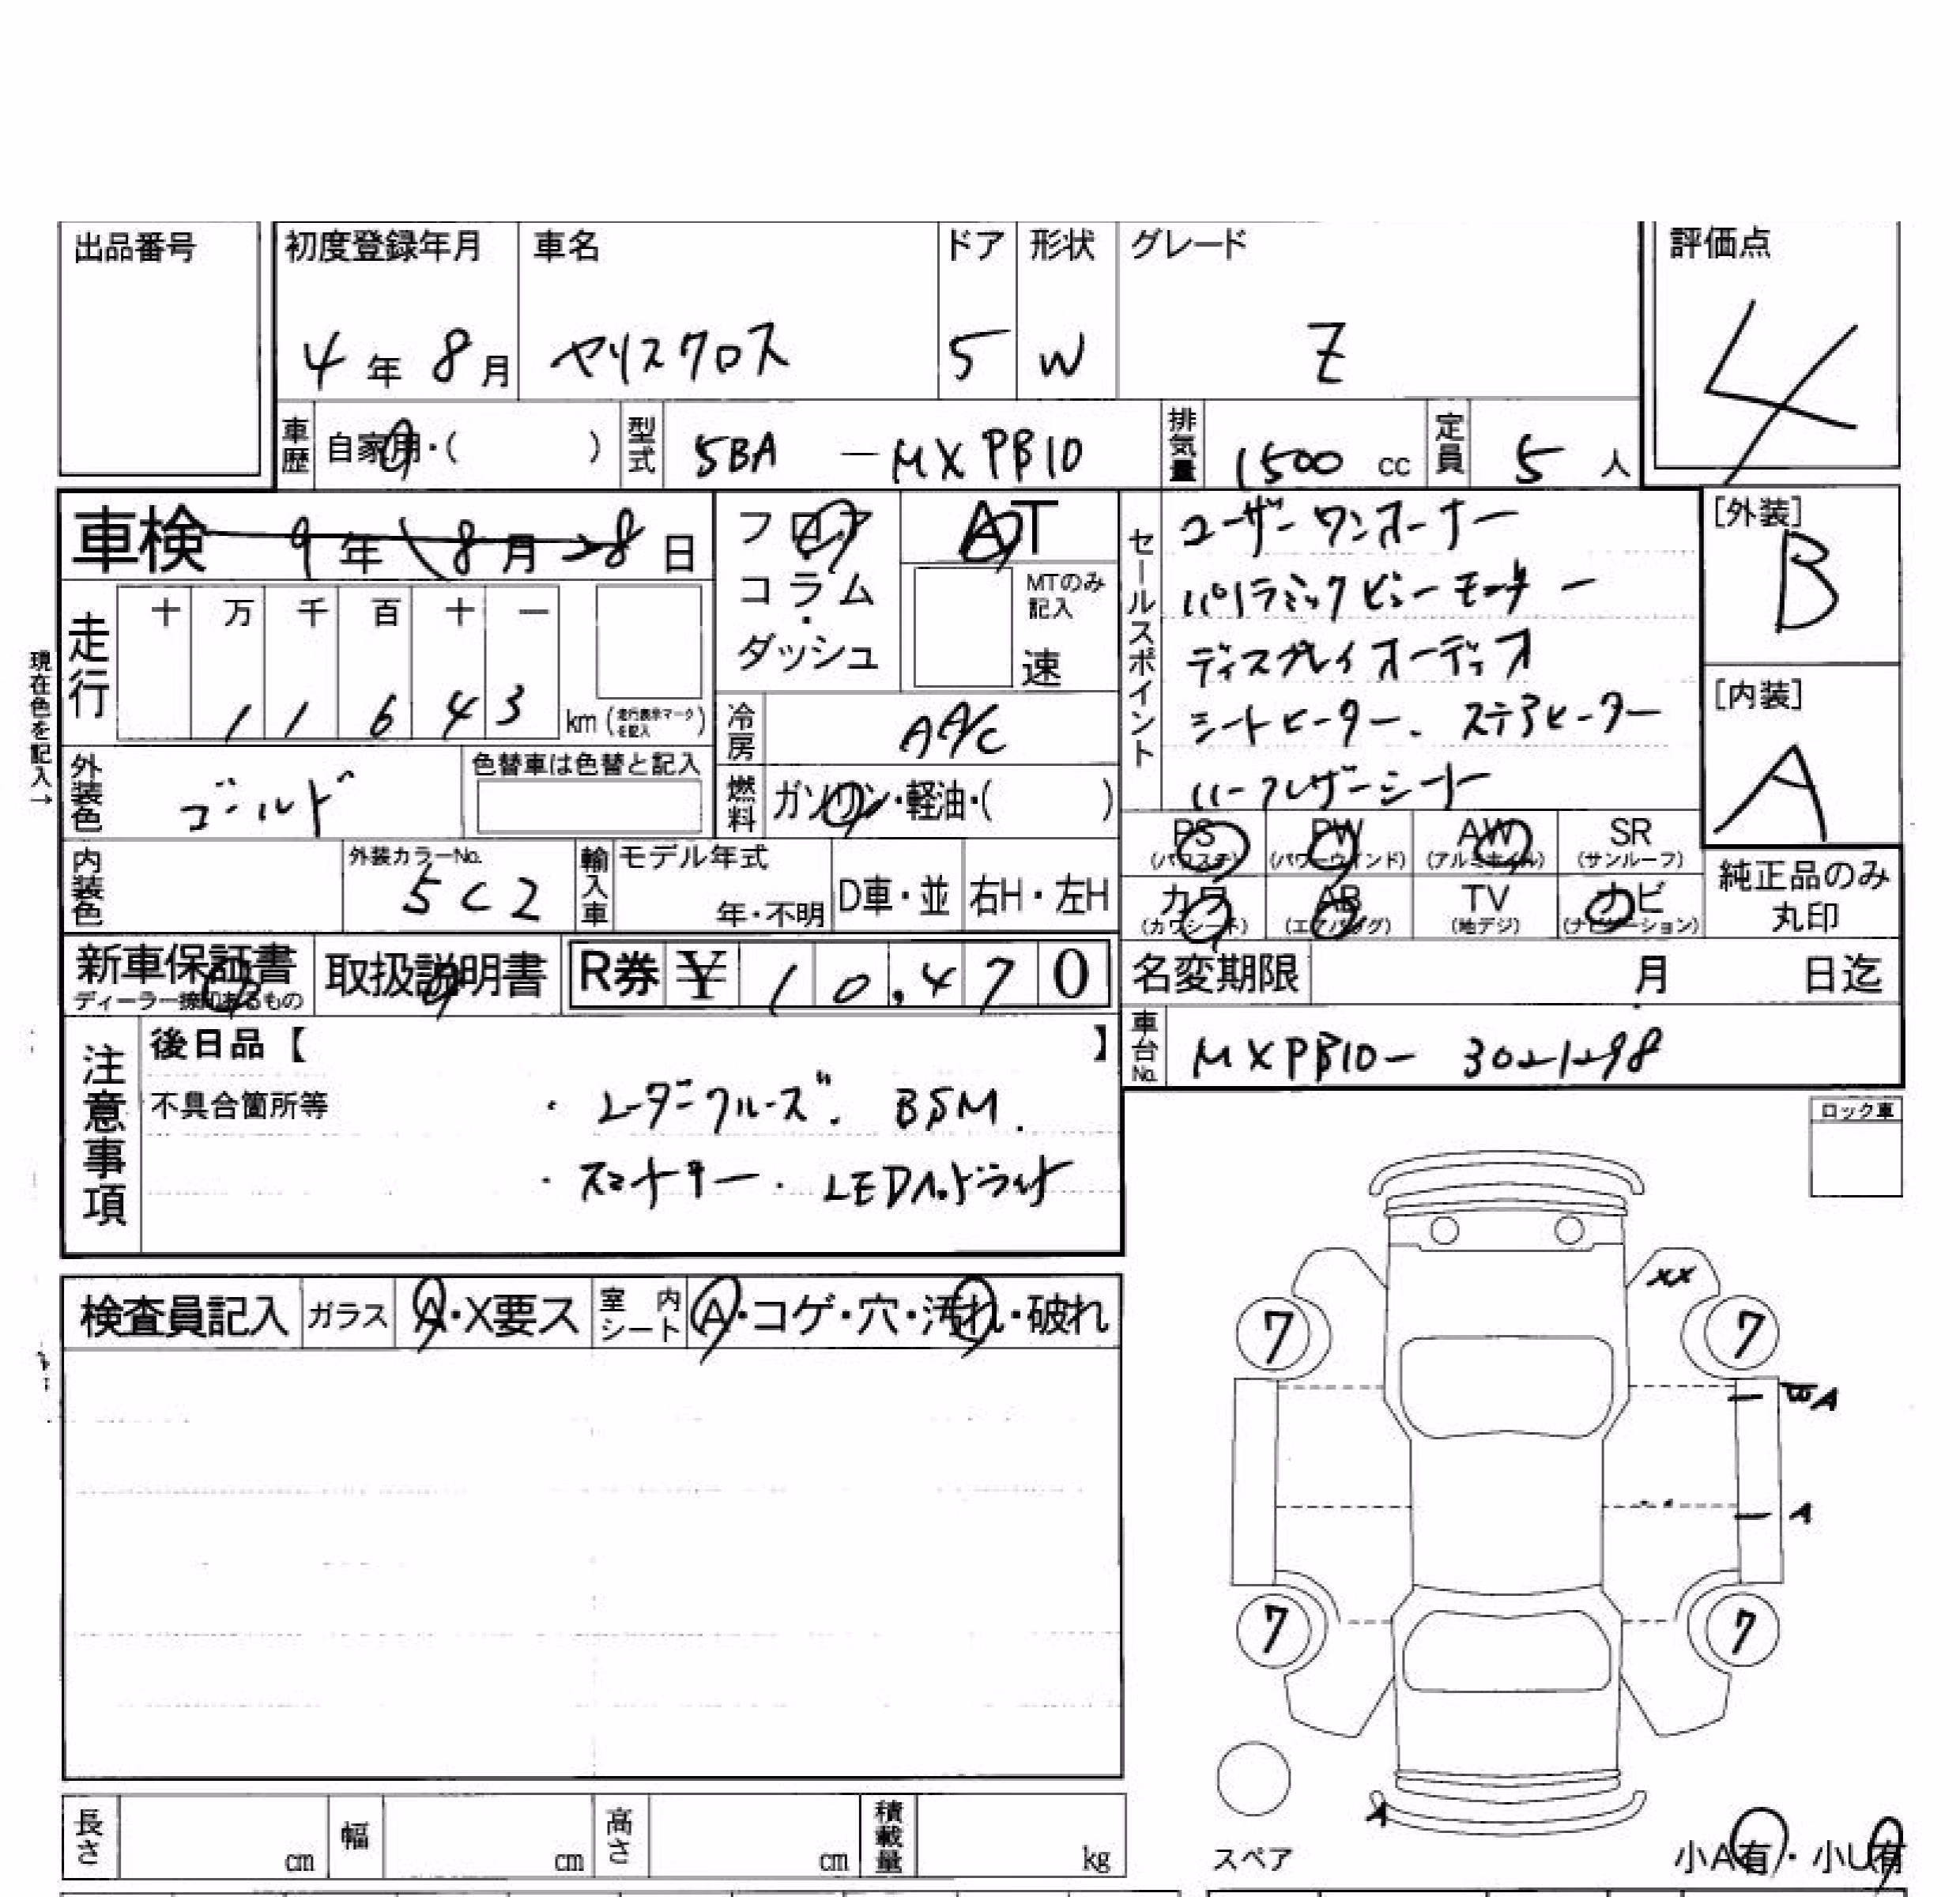 出品番号
初度登録年月 車名 ドア 形状 グレード 評価点
4年 8月 ヤリスクロス 5 W Z 4
車歴 自家用・( ) 型式 5BA-MXPB10 排気量 1500 cc 定員 5 人
車検 9年 8月 28日 フロア AT
コラム・ MTのみ記入
ダッシュ 速
走行 十 万 千 百 十 一
1 1 6 4 3 km (走行表示マークを記入)
現在色を記入→
冷房 AA/C
外装色 ゴールド 色替車は色替と記入
燃料 ガソリン・軽油・( )
内装色 外装カラーNo. 5C2 輸入車 モデル年式 年・不明 D車・並 右H・左H
新車保証書 ディーラー捺印あるもの 取扱説明書 R券 ¥ 10,470
セールスポイント
ユーザーワンオーナー
パノラミックビューモニター
ディスプレイオーディオ
シートヒーター、ステアヒーター
ハーフレザーシート
[外装] B
[内装] A
PS (パワステ) PW (パワーウインド) AW (アルミホイル) SR (サンルーフ)
カワ (カワシート) AB (エアバッグ) TV (地デジ) ナビ (ナビゲーション)
純正品のみ丸印
名変期限 月 日迄
車台No. MXPB10-3021298
注意事項 後日品【 】
不具合箇所等 ・レーダークルーズ. BSM.
・スマートキー. LEDヘッドライト
ロック車
検査員記入 ガラス A・X要ス 室内シート A・コゲ・穴・汚れ・破れ
XX
7 7
A
A
7 7
A
スペア
小A有・小U有
長さ cm 幅 cm 高さ cm 積載量 kg